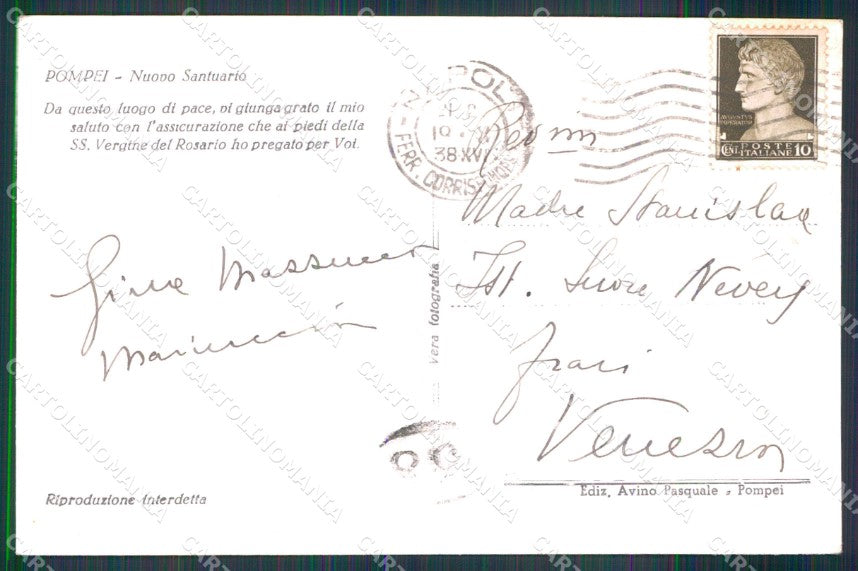 POMPEI - Nuovo Santuario
Da questo luogo di pace, vi giunga grato il mio
saluto con l'assicurazione che ai piedi della
SS. Vergine del Rosario ho pregato per Voi.
NAPOLI
19
38 XVI
FERR. CORRISP
AVGVSTVS
IMPERATOR
POSTE
CENT. ITALIANE 10
Madre Stanislaa
Ist. Suore Nevers
Frari
Venezia
Gina Massucco
vera fotografia
Riproduzione interdetta
Ediz. Avino Pasquale - Pompei
CARTOLINOMANIA